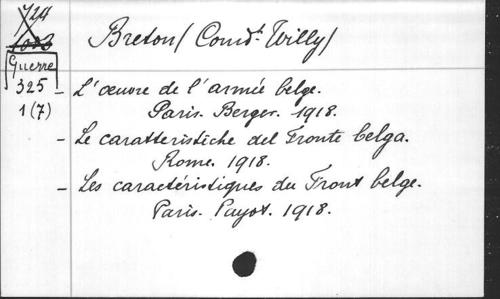 Breton (Comdt. Willy)
Guerre
325
1 (7)
- L'œuvre de l'armée belge.
Paris. Berger. 1918.
- Le caratteristiche del Fronte belga.
Rome. 1918.
- Les caractéristiques du Front belge.
Paris. Payot. 1918.